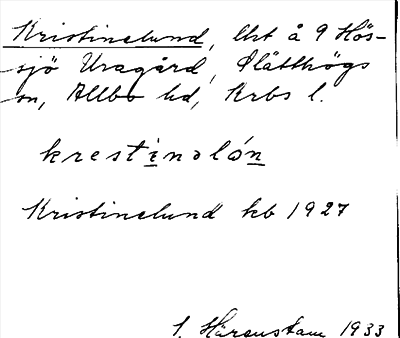 Kristinelund, lht å 9 Hös-
sjö Uragård, Slätthögs
sn, Allbo hd, Krbs l.
krestinəlón
Kristinelund kb 1927
S. Härenstam 1933